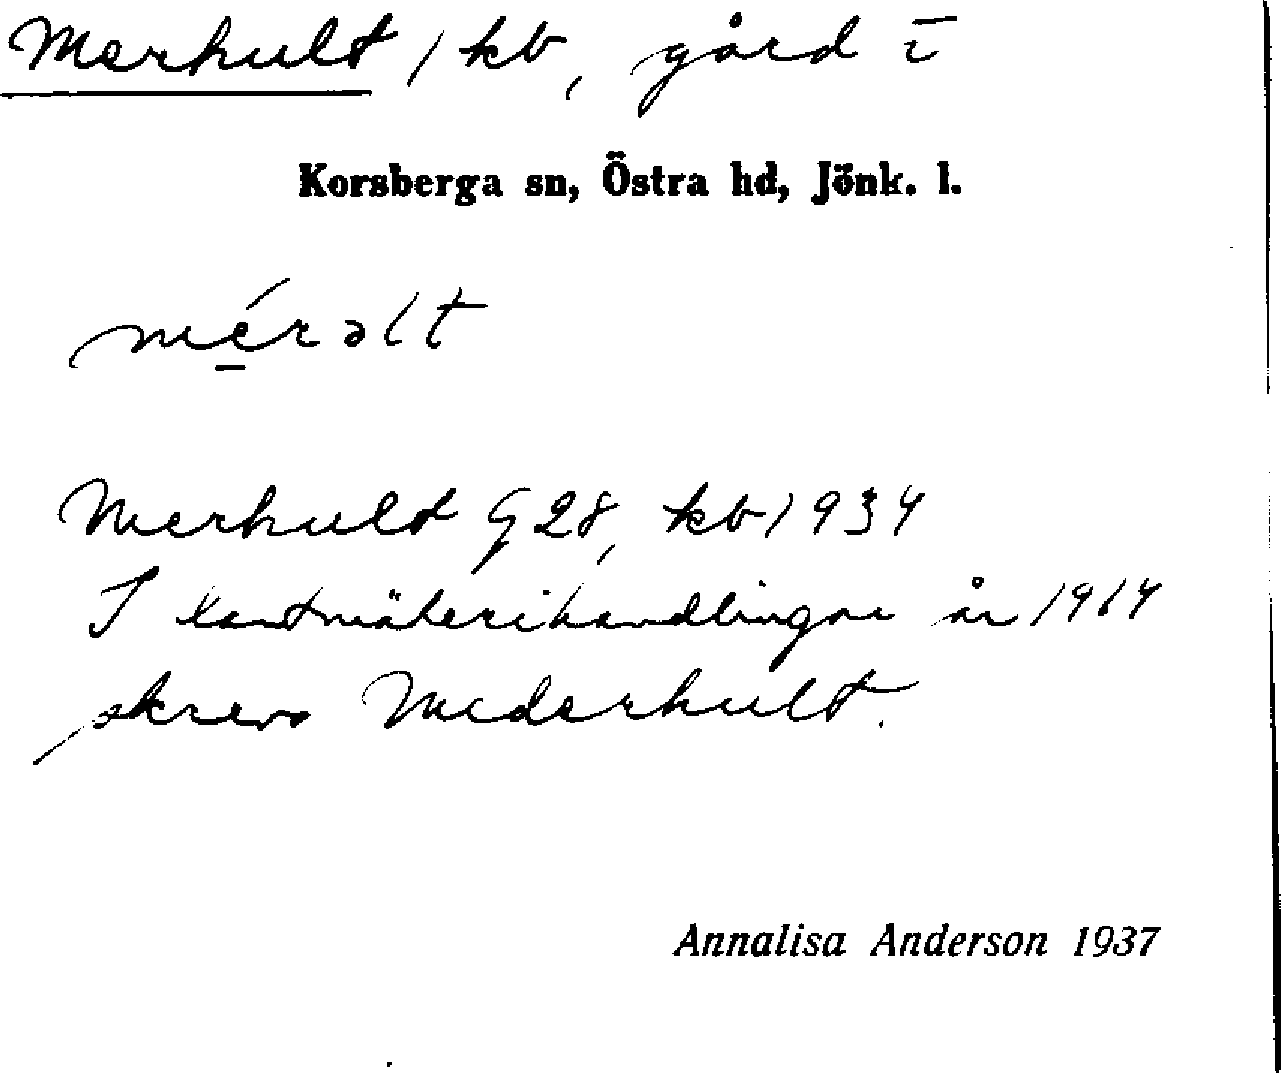 Merhult / kb, gård i
Korsberga sn, Östra hd, Jönk. l.
mérəlt
Merhult G 28, kb 1934
I lantmäterihandlingar år 1914
skrevs Mederhult.
Annalisa Anderson 1937